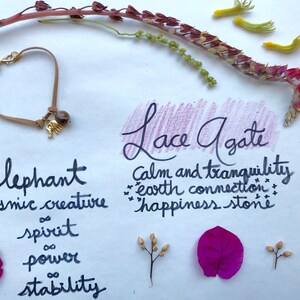 lephant
smic creature
∞
spirit
∞
power
∞
stability
Lace Agate
Calm and tranquility
earth connection
happiness stone